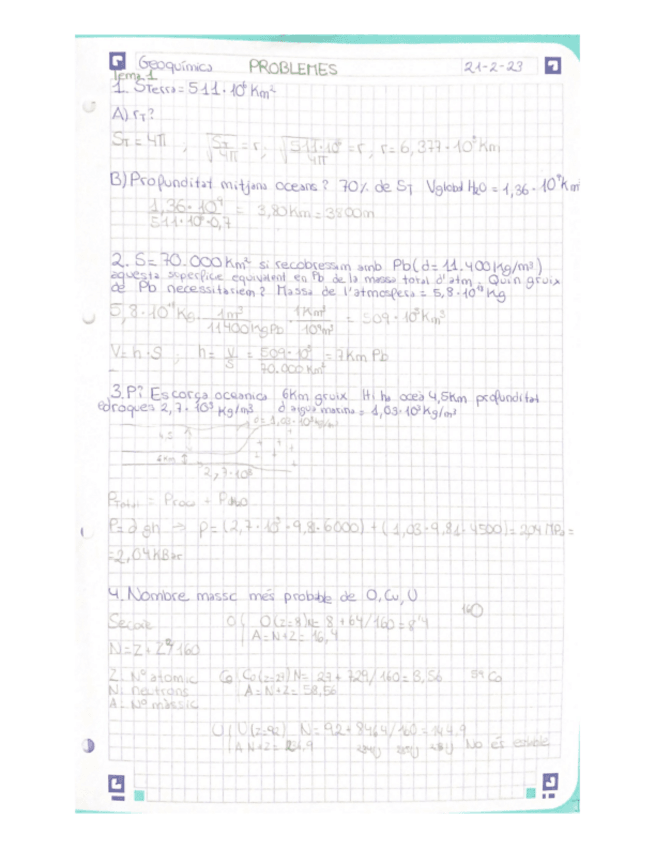 Geoquímica PROBLEMES 21-2-23
Tema 1
1. STerra = 511·10⁶ Km²
A) rT?
ST = 4π , √ST/4π = r; √511·10⁶/4π = r, r = 6,377·10³ Km
B) Profunditat mitjana oceans? 70% de ST Vglobal H₂O = 1,36·10⁹ Km
1,36·10⁹/511·10⁶·0,7 = 3,80 Km = 3800m
2. S = 70.000 Km² si recobrissim amb Pb (d = 11.400 Kg/m³)
aquesta superfície equivalent en Pb de la massa total d'atm. Quin gruix
de Pb necessitariem? Massa de l'atmosfera = 5,8·10¹⁸ Kg
5,8·10¹⁸ Kg · 1m³/11400 Kg Pb · 1Km³/10⁹m³ = 509·10³ Km³
V = h·S ; h = V/S = 509·10³/70.000 Km² = 7 Km Pb
3. P? Escorça oceanica 6Km gruix Hi ha oceà 4,5Km profunditat
droques 2,7·10³ Kg/m³ d aigua marina = 1,03·10³ Kg/m³
6Km
2,7·10³
PTotal = Proca + PH₂O
P = d g h → P = (2,7·10³·9,8·6000) + (1,03·9,81·4500) = 204 MPa =
= 2,04 KBar
4. Nombre massic més probable de O, Co, U
¹⁶O
O O (Z=8) N = 8 + 64/160 = 8'4
A = N+Z = 16,4
N = Z + Z²/160
Z: Nº atomic Co Co (Z=27) N = 27 + 729/160 = 3,56 ⁵⁹Co
N: neutrons A = N+Z = 58,56
A: Nº màssic
U U (Z=92) N = 92 + 8464/160 = 144,9
A N+Z = 236,9 ²³⁴U ²³⁵U ²³⁸U No és estable